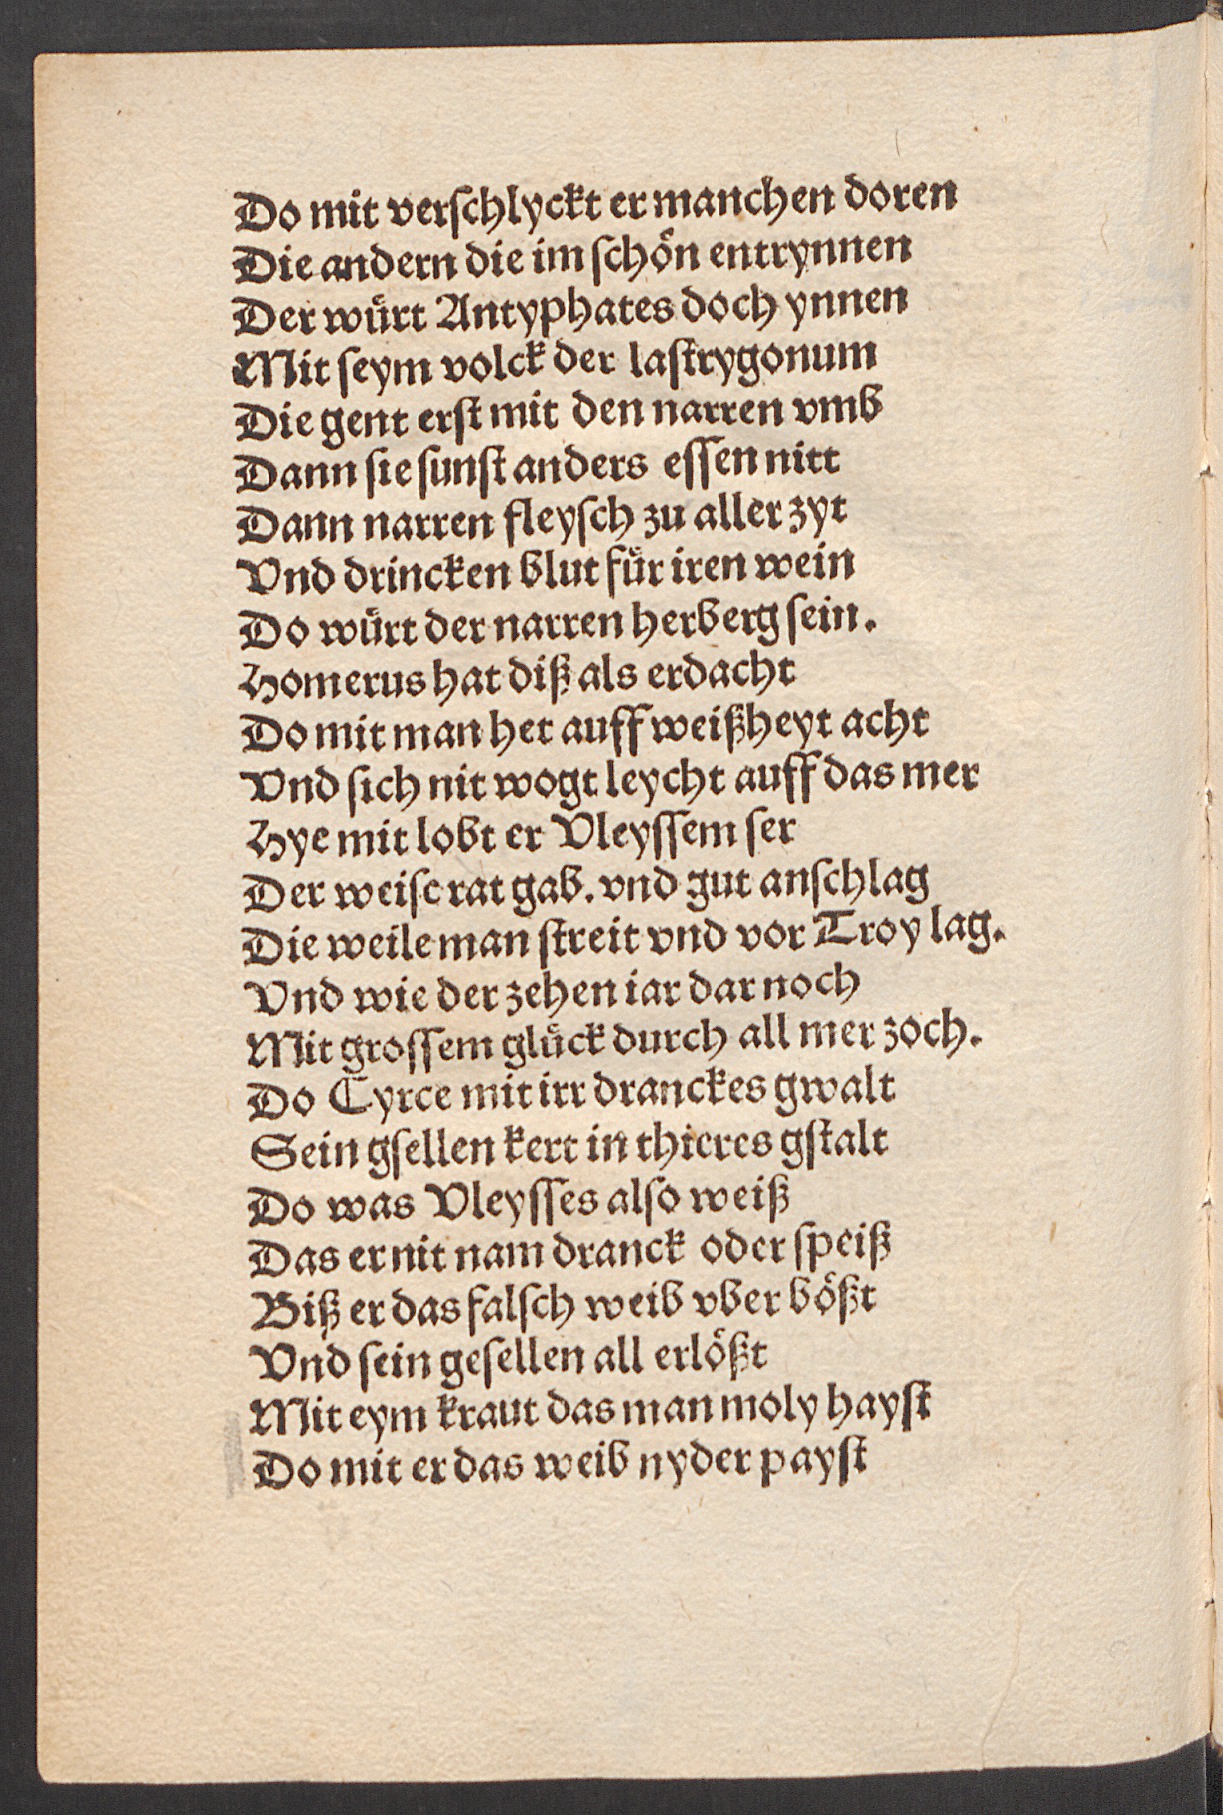 Do mit verſchlyckt er manchen doren
Die andern die im ſchoͤn entrynnen
Der wuͤrt Antyphates doch ynnen
Mit ſeym volck der laſtrygonum
Die gent erſt mit den narren vmb
Dann ſie ſunſt anders eſſen nitt
Dann narren fleyſch zu aller zyt
Vnd drincken blut fuͤr iren wein
Do wuͤrt der narren herberg ſein.
Homerus hat diß als erdacht
Do mit man het auff weißheyt acht
Vnd ſich nit wogt leycht auff das mer
Hye mit lobt er Vleyſſem ſer
Der weiſe rat gab. vnd gut anſchlag
Die weile man ſtreit vnd vor Troy lag.
Vnd wie der zehen iar dar noch
Mit groſſem gluͤck durch all mer zoch.
Do Cyrce mit irr dranckes gwalt
Sein gſellen kert in thieres gſtalt
Do was Vleyſſes alſo weiß
Das er nit nam dranck oder ſpeiß
Biß er das falſch weib vber boͤßt
Vnd ſein geſellen all erloͤßt
Mit eym kraut das man moly hayſt
Do mit er das weib nyder payſt